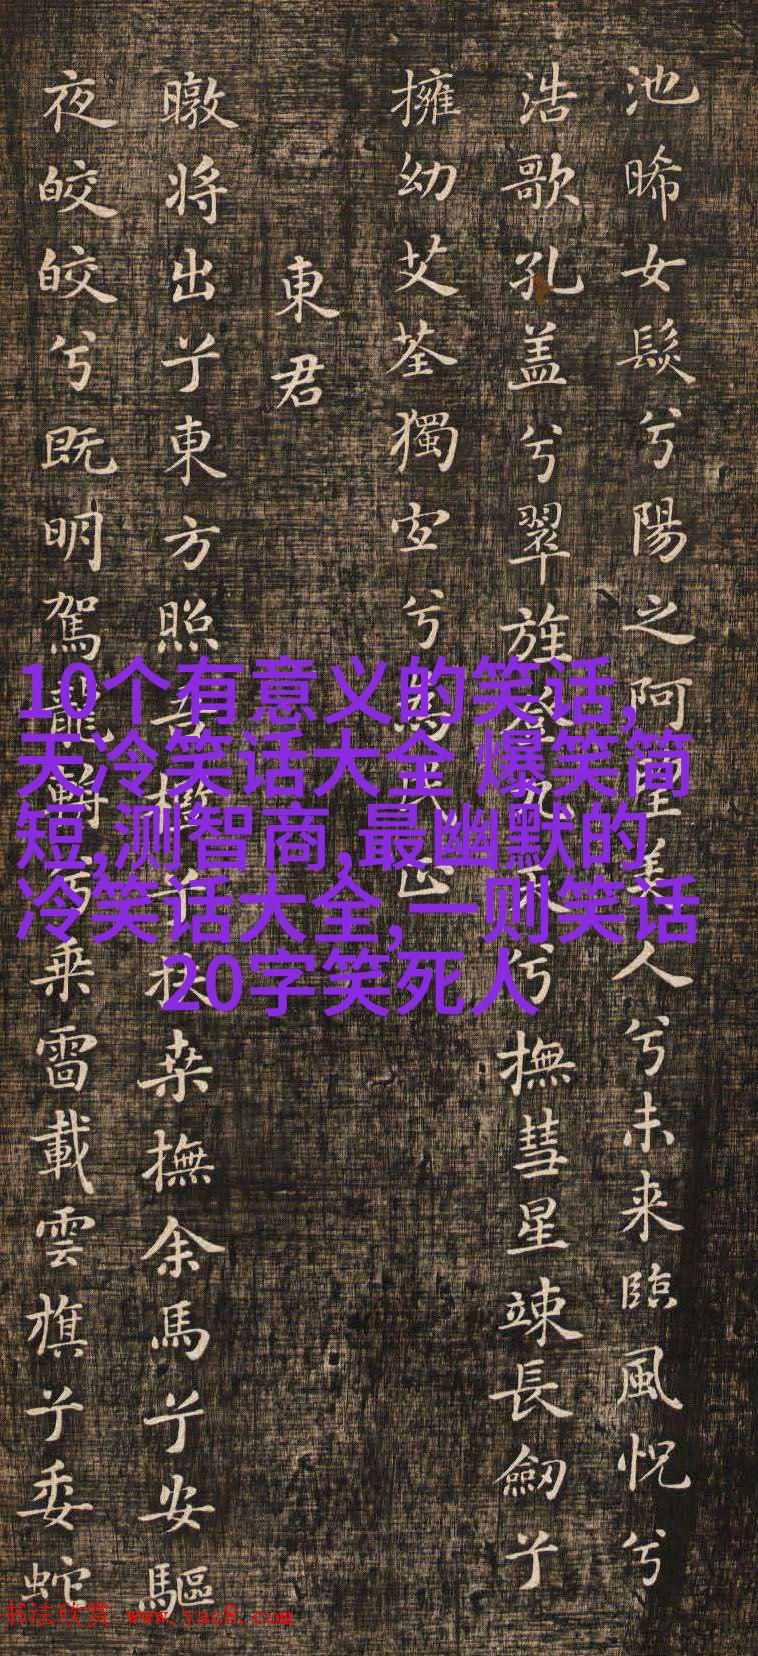 池晞女髮兮陽之阿望美人兮未来臨風怳兮
浩歌孔盖兮翠旌登九天兮撫彗星竦長劒兮
擁幼艾荃獨宜兮為民正
東君
暾将出兮東方照吾檻兮扶桑撫余馬兮安驅
夜皎皎兮既明駕龍輈兮乗雷載雲旗兮委蛇
10个有意义的笑话,
天冷笑话大全 爆笑简
短,测智商,最幽默的
冷笑话大全,一则笑话
20字笑死人
书法欣赏 www.yac8.com